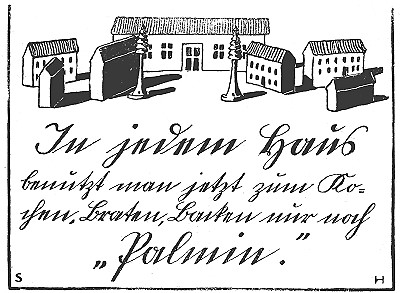 In jedem Haus
benutzt man jetzt zum Ko-
chen, Braten, Backen nur noch
„Palmin."
S H